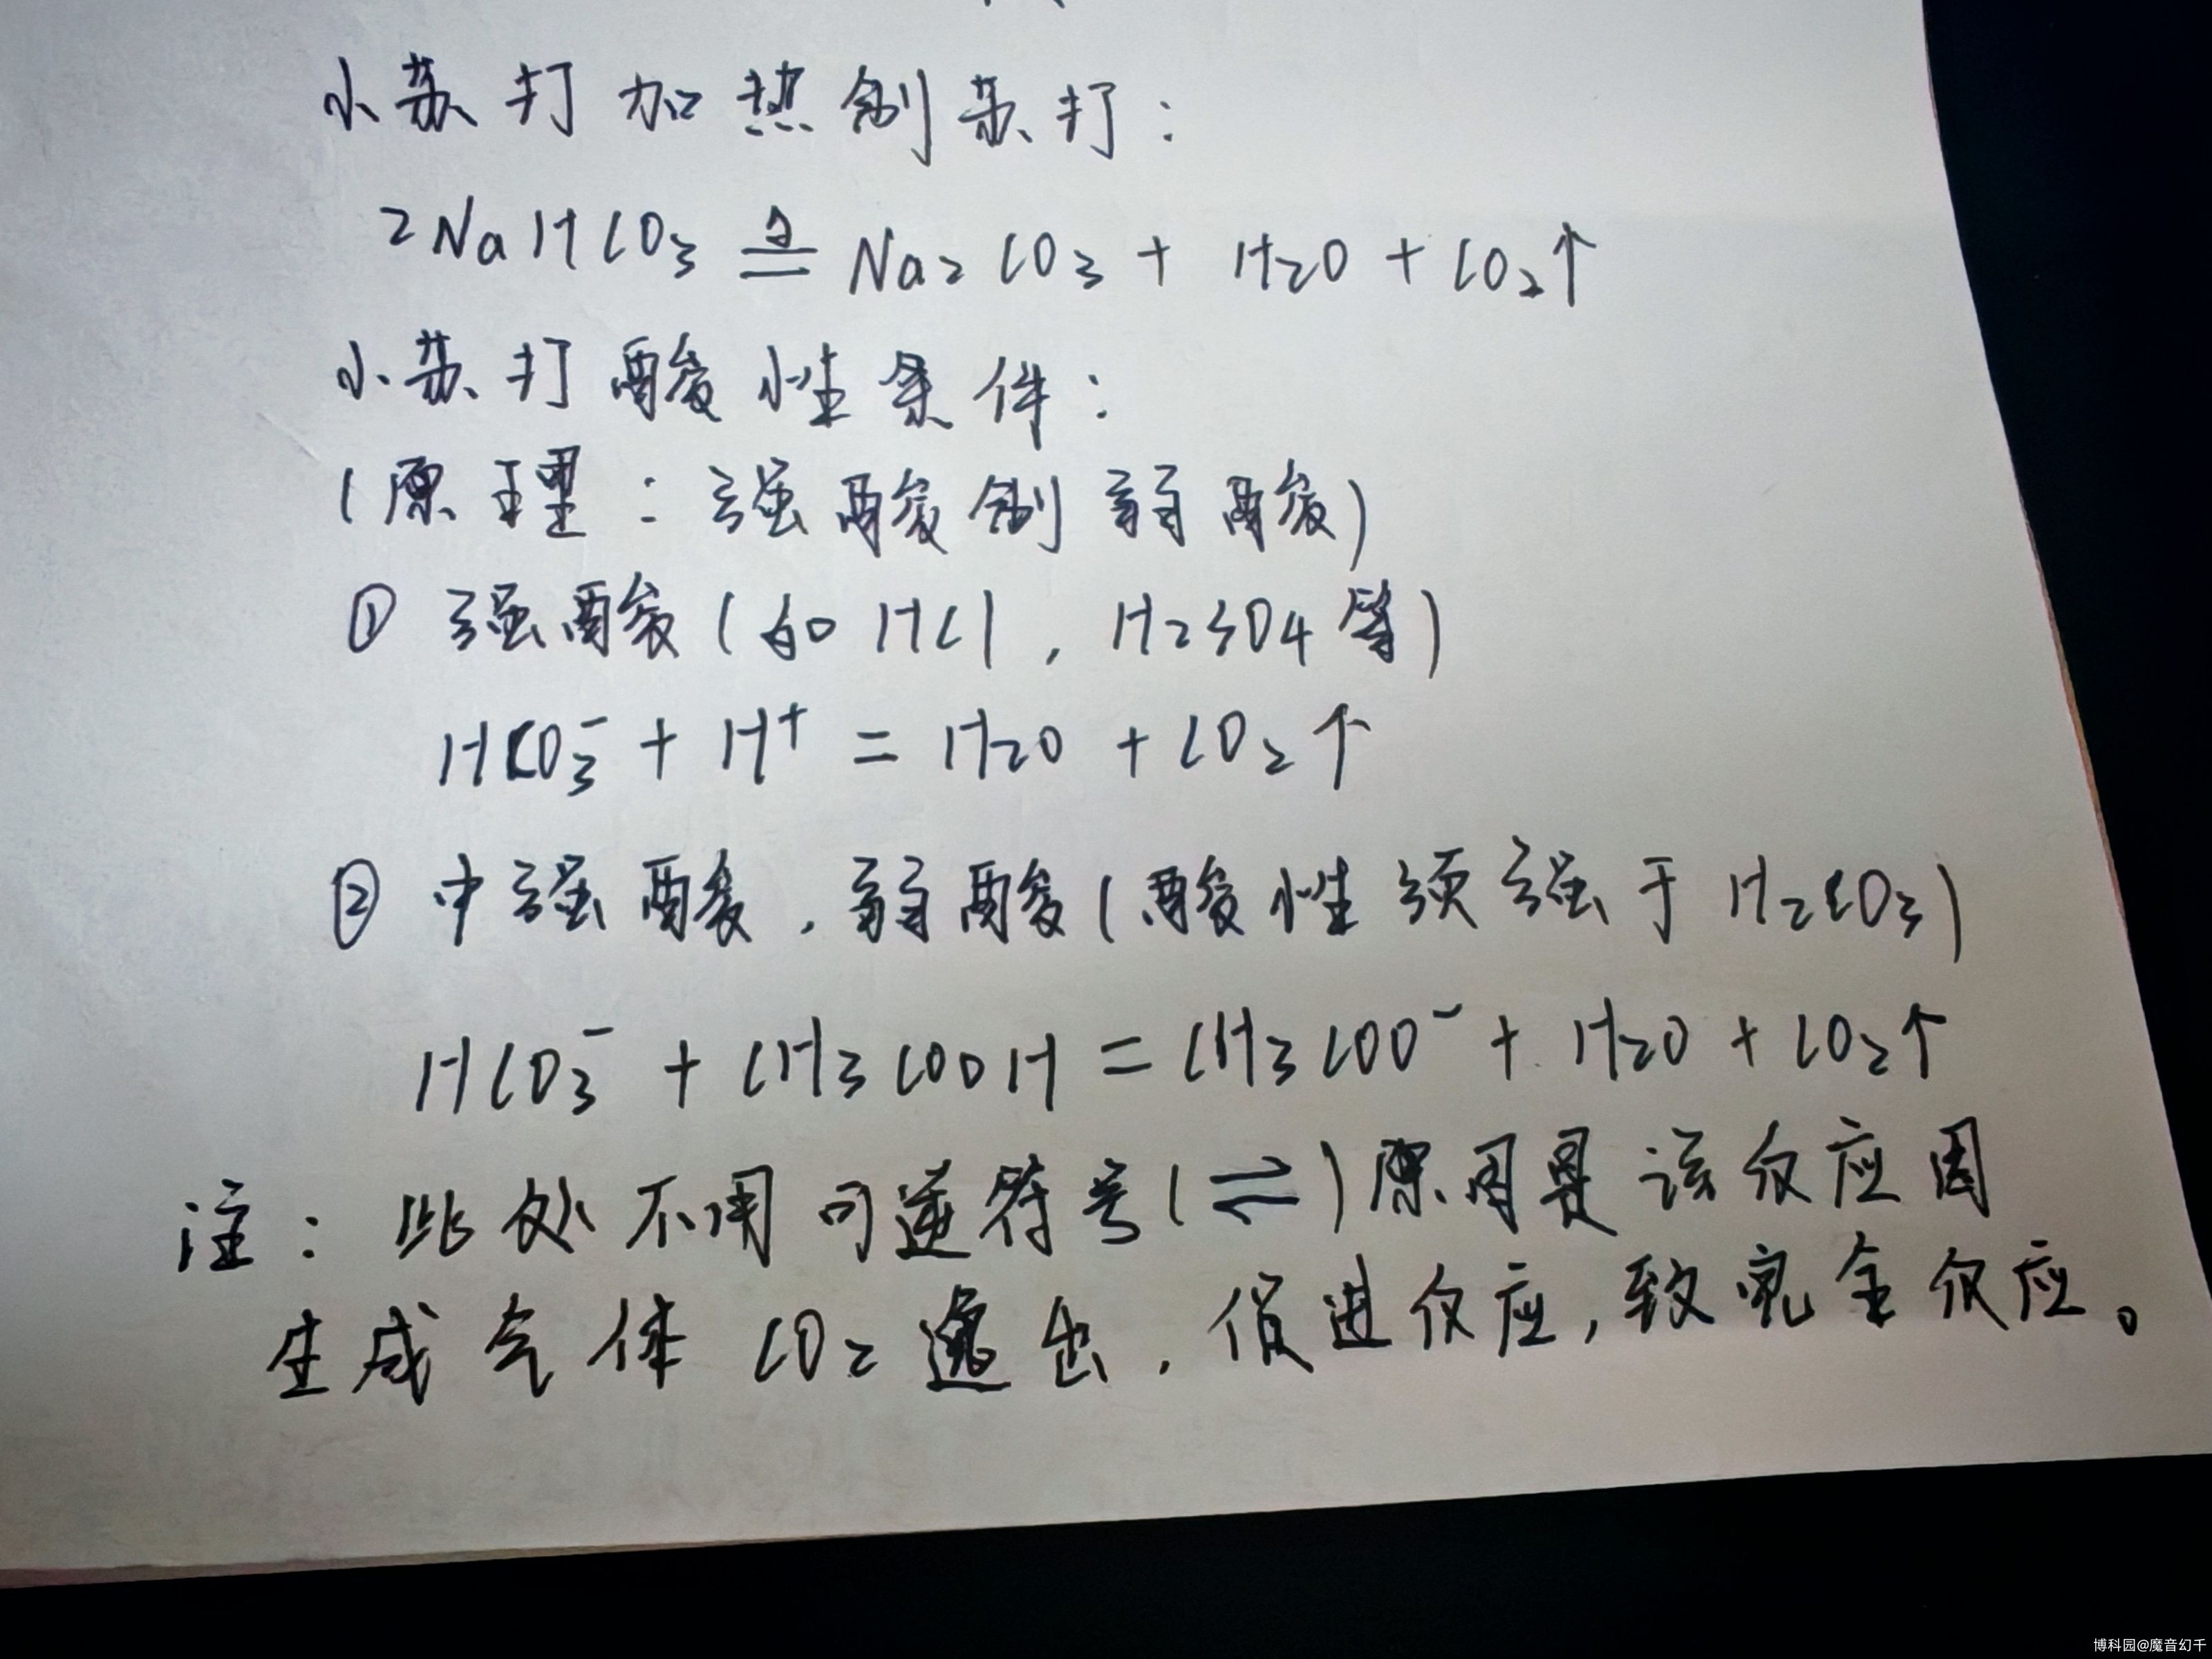 小苏打加热制苏打:
2NaHCO₃ ≜ Na₂CO₃ + H₂O + CO₂↑
小苏打酸性条件:
(原理:强酸制弱酸)
① 强酸(如HCl,H₂SO₄等)
HCO₃⁻ + H⁺ = H₂O + CO₂↑
② 中强酸,弱酸(酸性须强于H₂CO₃)
HCO₃⁻ + CH₃COOH = CH₃COO⁻ + H₂O + CO₂↑
注:此处不用可逆符号(⇌)原因是该反应因
生成气体CO₂逸出,促进反应,致完全反应。
博科园@魔音幻千